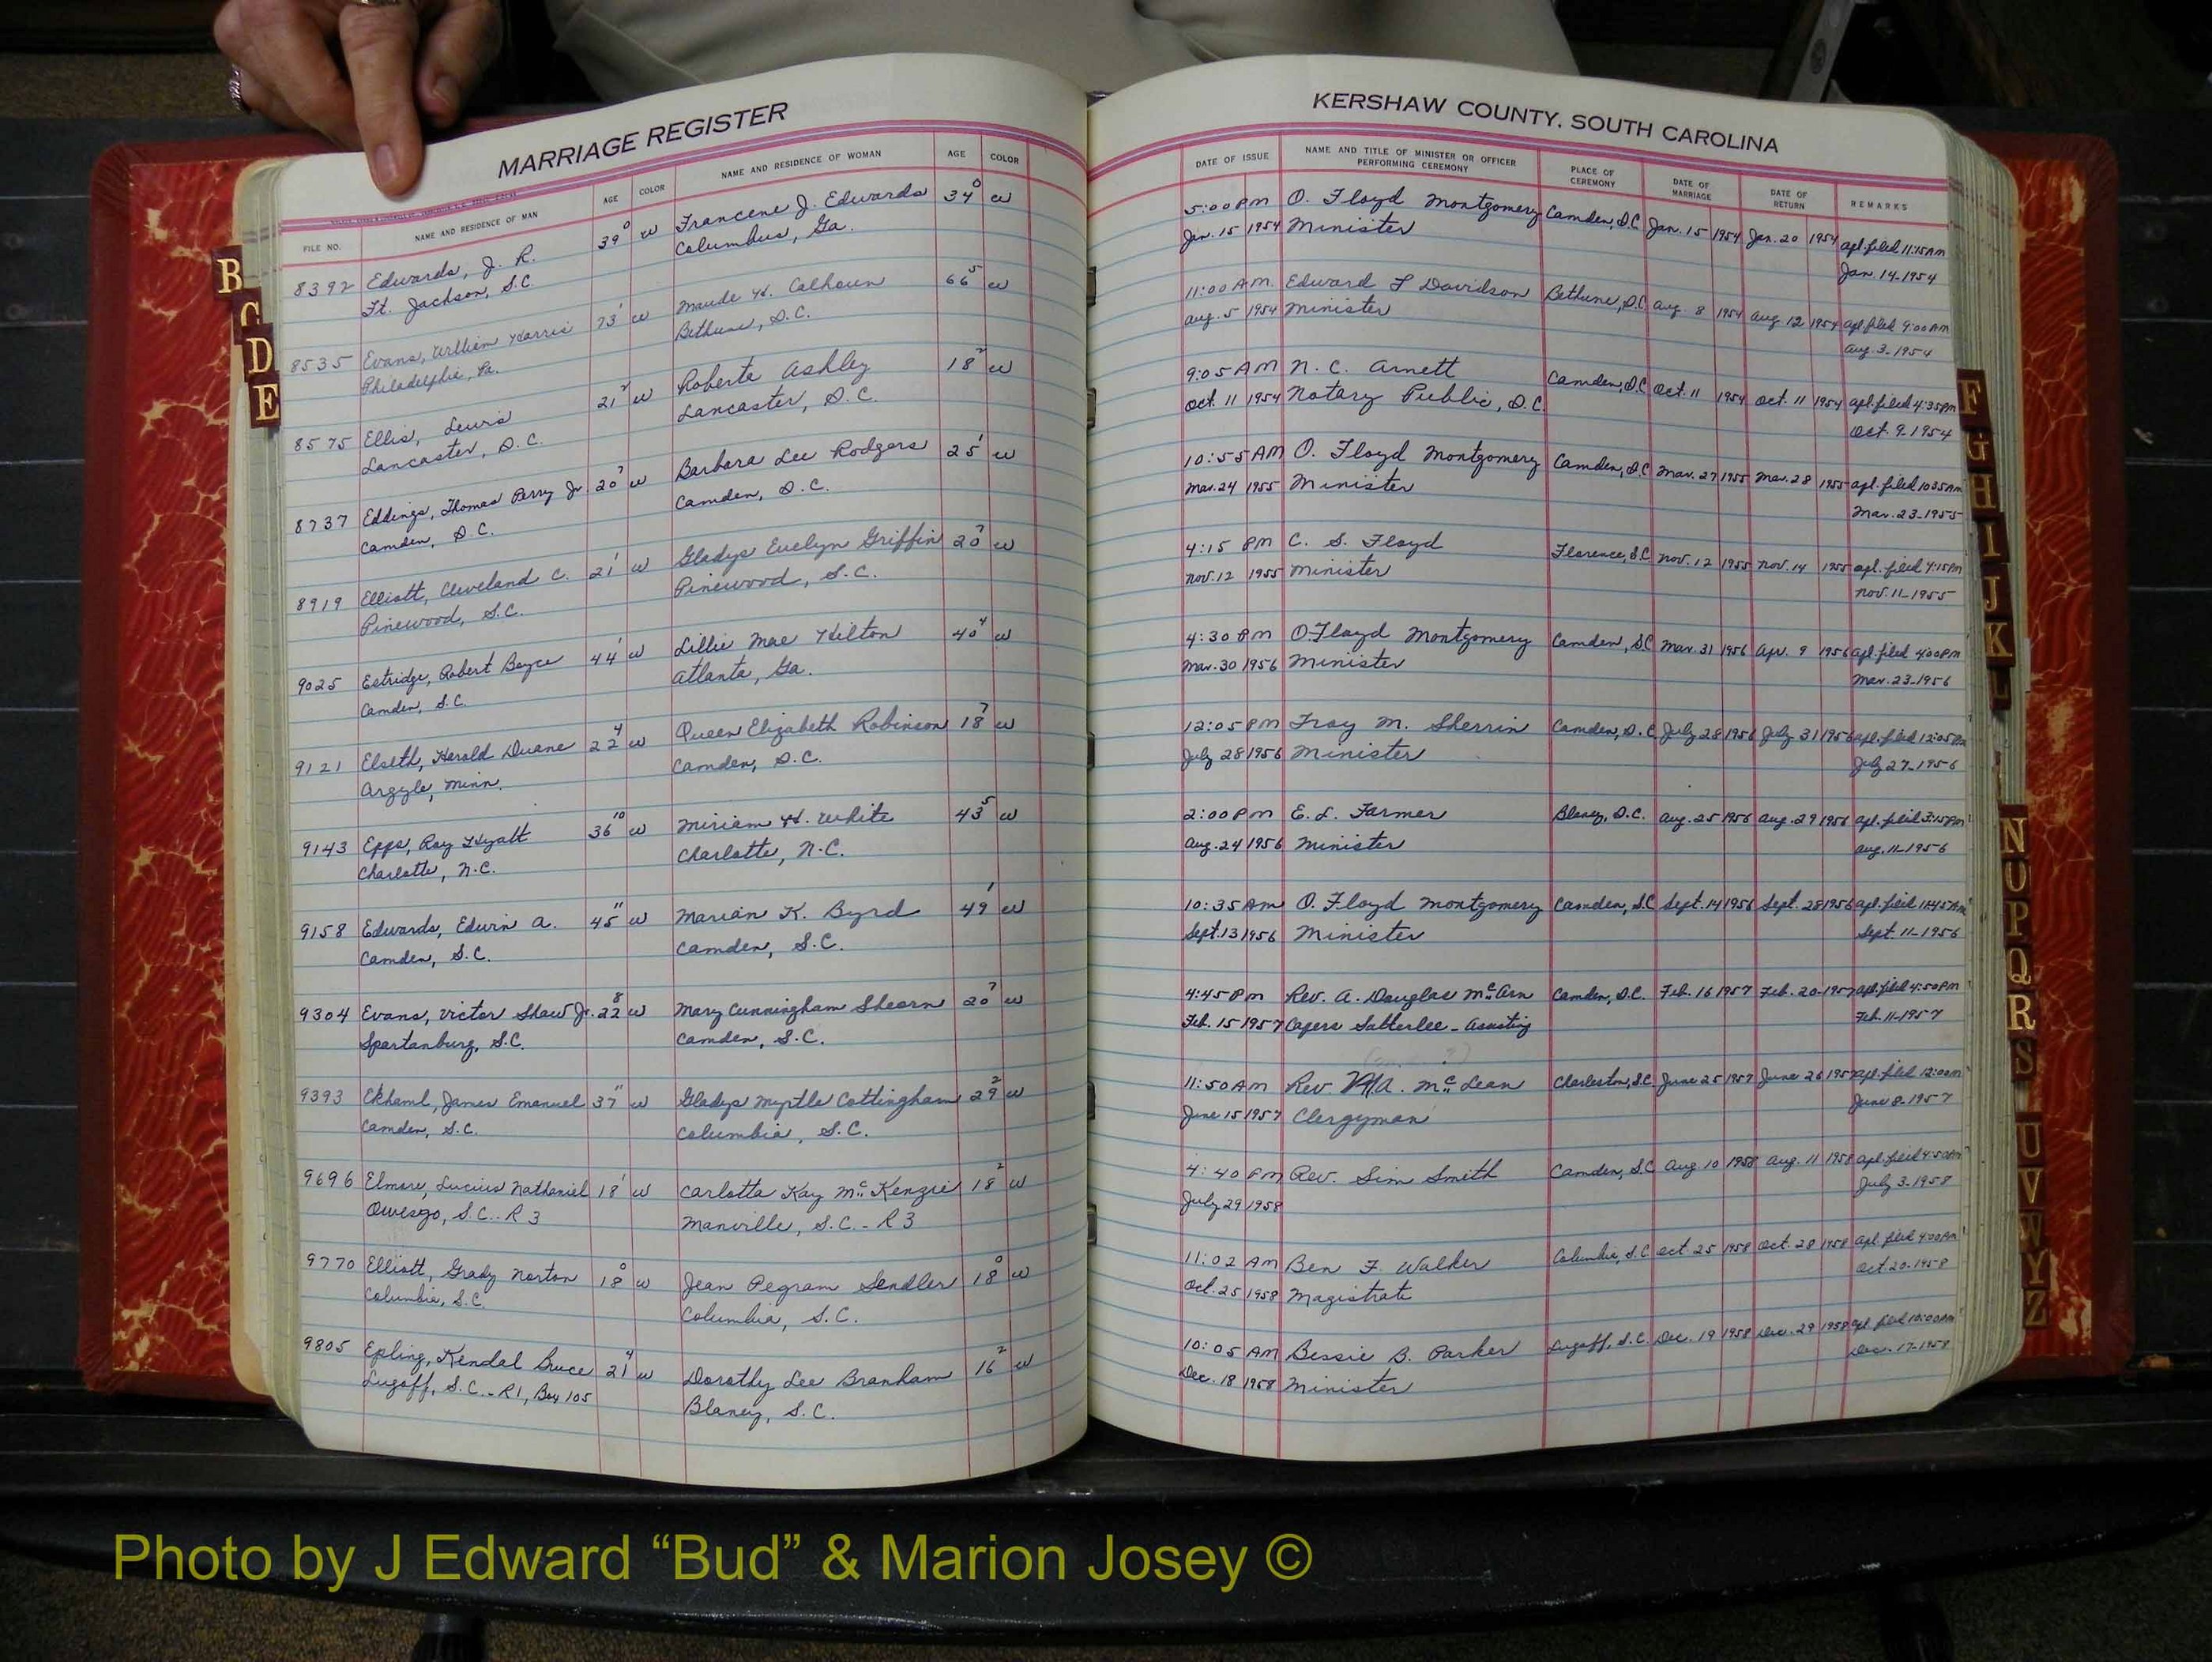 MARRIAGE REGISTER
FILE NO. NAME AND RESIDENCE OF MAN AGE COLOR NAME AND RESIDENCE OF WOMAN AGE COLOR
8392 Edwards, J. R. 39 0 w Francene J. Edwards 34 0 w
Ft. Jackson, S.C. Columbus, Ga.
8535 Evans, William Harris 73 1 w Maude H. Calhoun 66 5 w
Philadelphia, Pa. Bethune, S.C.
8575 Ellis, Lewis 21 2 w Roberta Ashley 18 2 w
Lancaster, S.C. Lancaster, S.C.
8737 Eddings, Thomas Perry Jr. 20 7 w Barbara Lee Rodgers 25 1 w
Camden, S.C. Camden, S.C.
8919 Elliott, Cleveland C. 21 1 w Gladys Evelyn Griffin 20 7 w
Pinewood, S.C. Pinewood, S.C.
9025 Estridge, Robert Boyce 44 1 w Lillie Mae Hilton 40 4 w
Camden, S.C. Atlanta, Ga.
9121 Elseth, Harold Duane 22 4 w Queen Elizabeth Robinson 18 7 w
Argyle, Minn. Camden, S.C.
9143 Epps, Roy Hyatt 36 10 w Miriam H. White 43 5 w
Charlotte, N.C. Charlotte, N.C.
9158 Edwards, Edwin A. 45 11 w Marian K. Byrd 49 1 w
Camden, S.C. Camden, S.C.
9304 Evans, Victor Shaw Jr. 22 8 w Mary Cunningham Shearn 20 7 w
Spartanburg, S.C. Camden, S.C.
9393 Ekhaml, James Emanuel 37 11 w Gladys Myrtle Cottingham 29 2 w
Camden, S.C. Columbia, S.C.
9696 Elmore, Lucius Nathaniel 18 1 w Carlotta Kay McKenzie 18 2 w
Owesgo, S.C. - R 3 Manville, S.C. - R 3
9770 Elliott, Grady Norton 18 0 w Jean Pegram Sendler 18 0 w
Columbia, S.C. Columbia, S.C.
9805 Epling, Kendal Bruce 21 4 w Dorothy Lee Branham 16 2 w
Lugoff, S.C. - R1, Box 105 Blaney, S.C.
KERSHAW COUNTY, SOUTH CAROLINA
DATE OF ISSUE NAME AND TITLE OF MINISTER OR OFFICER PERFORMING CEREMONY PLACE OF CEREMONY DATE OF MARRIAGE DATE OF RETURN REMARKS
5:00 PM O. Floyd Montgomery Camden, S.C. Jan. 15 1954 Jan. 20 1954 apl. filed 11:15 AM
Jan. 15 1954 Minister Jan. 14-1954
11:00 A.M. Edward F Davidson Bethune, S.C. Aug. 8 1954 Aug 12 1954 apl filed 9:00 AM
Aug. 5 1954 Minister Aug. 3-1954
9:05 AM N. C. Arnett Camden, S.C. Oct. 11 1954 Oct. 11 1954 apl. filed 4:35 PM
Oct. 11 1954 Notary Public, S.C. Oct. 9-1954
10:55 AM O. Floyd Montgomery Camden, S.C. Mar. 27 1955 Mar. 28 1955 apl. filed 10:35 AM
Mar. 24 1955 Minister Mar. 23-1955
4:15 PM C. S. Floyd Florence, S.C. Nov. 12 1955 Nov. 14 1955 apl. filed 4:15 PM
Nov. 12 1955 Minister Nov. 11-1955
4:30 PM O. Floyd Montgomery Camden, S.C. Mar. 31 1956 Apr. 9 1956 apl. filed 4:00 PM
Mar. 30 1956 Minister Mar. 23-1956
12:05 PM Troy M. Sherrin Camden, S.C. July 28 1956 July 31 1956 apl. filed 12:05 PM
July 28 1956 Minister July 27-1956
2:00 PM E. L. Farmer Blaney, S.C. Aug. 25 1956 Aug. 29 1956 apl. filed 3:15 PM
Aug. 24 1956 Minister Aug. 11-1956
10:35 AM O. Floyd Montgomery Camden, S.C. Sept. 14 1956 Sept. 28 1956 apl. filed 11:45 AM
Sept. 13 1956 Minister Sept. 11-1956
4:45 PM Rev. A. Douglas McArn Camden, S.C. Feb. 16 1957 Feb. 20-1957 apl. filed 4:50 PM
Feb. 15 1957 Capers Satterlee - Assisting Feb. 11-1957
11:50 AM Rev. A. McLean Charleston, S.C. June 25 1957 June 26 1957 apl. filed 12:00
June 15 1957 Clergyman June 8-1957
4:40 PM Rev. Sim Smith Camden, S.C. Aug 10 1958 Aug. 11 1958 apl. filed 4:50 AM
July 29 1958 July 3-1958
11:02 AM Ben F. Walker Columbia, S.C. Oct 25 1958 Oct. 28 1958 apl. filed 4:00 PM
Oct. 25 1958 Magistrate Oct 20-1958
10:05 AM Bessie B. Parker Lugoff, S.C. Dec. 19 1958 Dec. 29 1958 apl filed 10:00 AM
Dec. 18 1958 Minister Dec. 17-1958
B
C
D
E
F
G
H
I
J
K
L
N
O
P
Q
R
S
U
V
W
Y
Z
Photo by J Edward “Bud” & Marion Josey ©